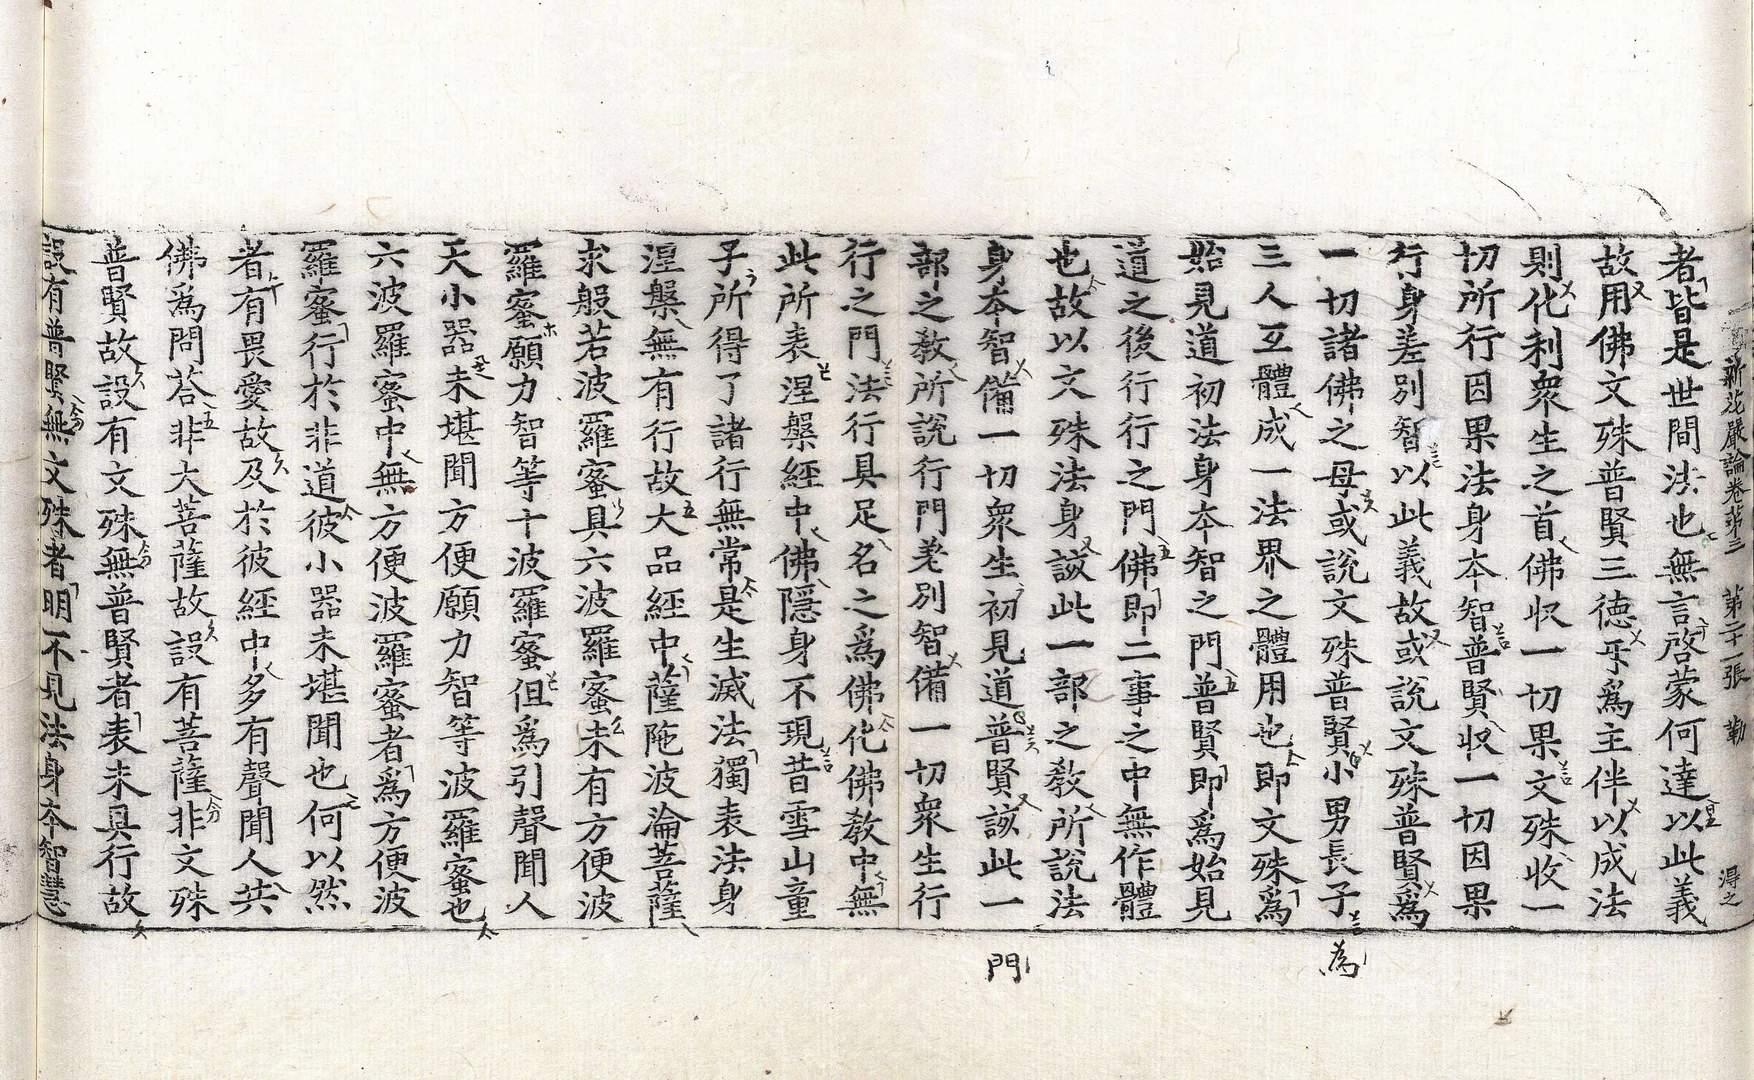 新花嚴論卷苐三 第二十一張 勤 淂之
者皆是世間法也無言啓蒙何達以此義
故用佛文殊普賢三德𭅺爲主伴以成法
則化利衆生之首佛収一切果文殊收一
切所行因果法身夲智普賢収一切因果
行身差別智以此義故或說文殊普賢爲
一切諸佛之母或說文殊普賢小男長子
三人互體成一法界之體用也即文殊爲
始見道初法身夲智之門普賢即爲始見
道之後行行之門佛即二事之中無作體
也故以文殊法身該此一部之敎所說法
身夲智備一切衆生初見道普賢該此一
部之敎所說行門差別智備一切衆生行
行之門法行具足名之爲佛化佛敎中無
此所表涅槃經中佛隱身不現昔雪山童
子所得了諸行無常是生滅法獨表法身
涅槃無有行故大品經中薩陁波淪菩薩
求般若波羅蜜具六波羅蜜未有方便波
羅蜜願力智等十波羅蜜但爲引聲聞人
天小器未堪聞方便願力智等波羅蜜也
六波羅蜜中無方便波羅蜜者爲方便波
羅蜜行於非道彼小器未堪聞也何以然
者有畏愛故及於彼經中多有聲聞人共
佛爲問荅非大菩薩故設有菩薩非文殊
普賢故設有文殊無普賢者表未具行故
設有普賢無文殊者明不見法身夲智慧
為
門